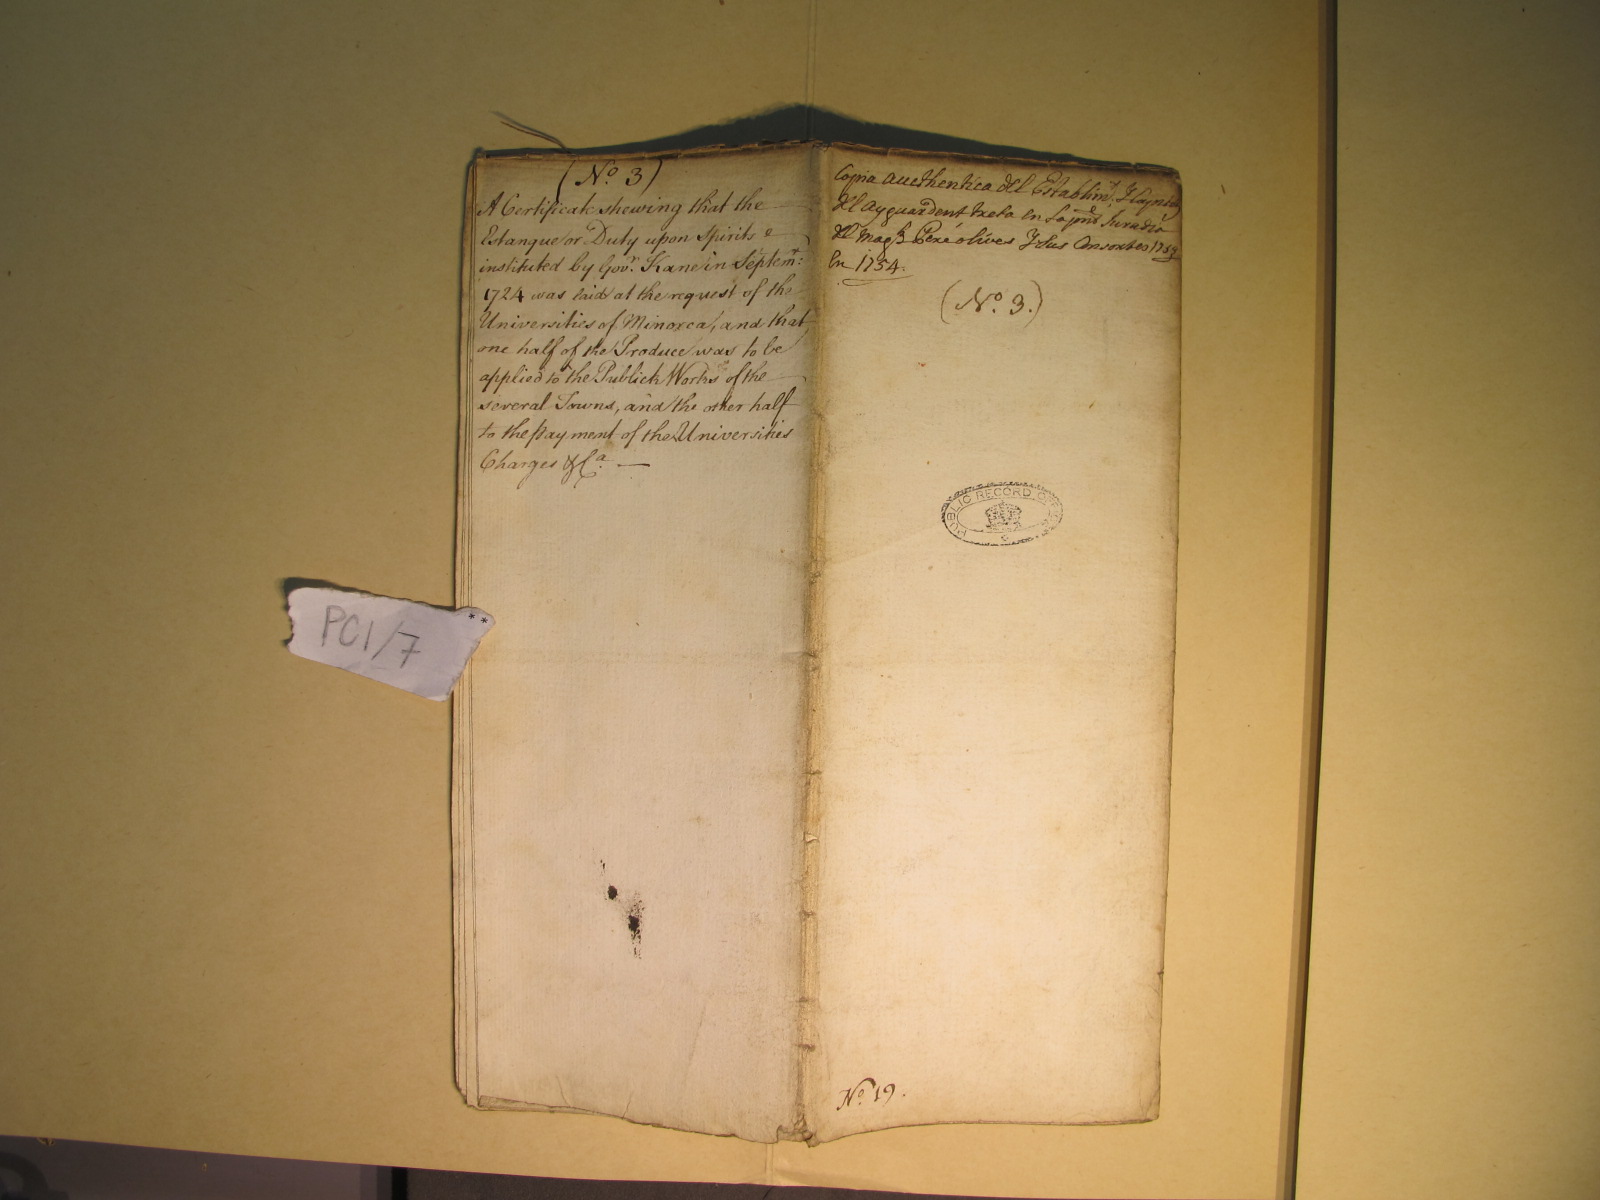 (No. 3)
A Certificate shewing that the
Estanque or Duty upon Spirits
instituted by Govr. Kane in Septemr:
1724 was laid at the request of the
Universities of Minorca, and that
one half of the Produce was to be
applied to the Publick Works of the
several Towns, and the other half
to the payment of the Universities
Charges &Ca. —
Copia aucthentica del Establimt. Y
del ayguardent treta en la pnt. Juradia
del Magh. Pere olives Y Sus Consortes 1753
en 1754.
(No. 3.)
PUBLIC RECORD OFFICE
No. 19.
PC1/7
**